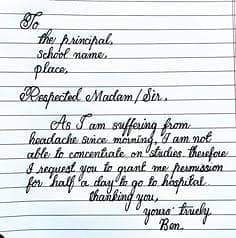 To
the principal,
school name,
place,
Respected Madam/Sir,
As I am suffering from
headache since morning, I am not
able to concentrate on studies. therefore
I request you to grant me permission
for half a day to go to hospital.
thanking you,
yours truely
Ben.